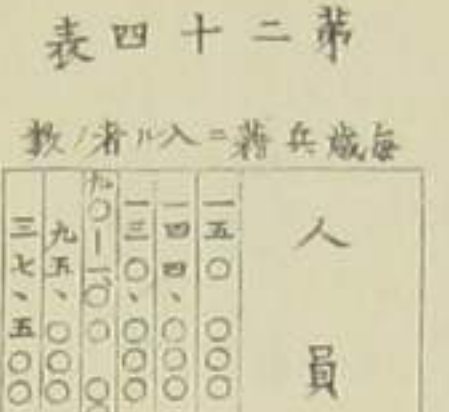 苐二十四表
每歳兵籍ニ入ル者ノ數
人員
一五〇〇〇〇
一四四、〇〇〇
一三〇、〇〇〇
九〇—一〇〇〇
九五、〇〇〇
三七、五〇〇